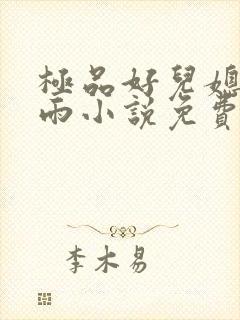 極品好兒媳
雨小説免費
李木易